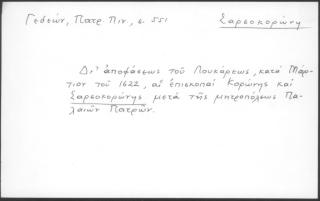 Γεδεών, Πατρ. Πιν., σ. 551
Σαρσοκορώνη
Δι' ἀποφάσεως τοῦ Λουκάρεως, κατά Μάρ-
τιον τοῦ 1622, αἱ ἐπισκοπαί Κορώνης καί
Σαρσοκορώνης μετά τῆς μητροπόλεως Πα-
λαιῶν Πατρῶν.